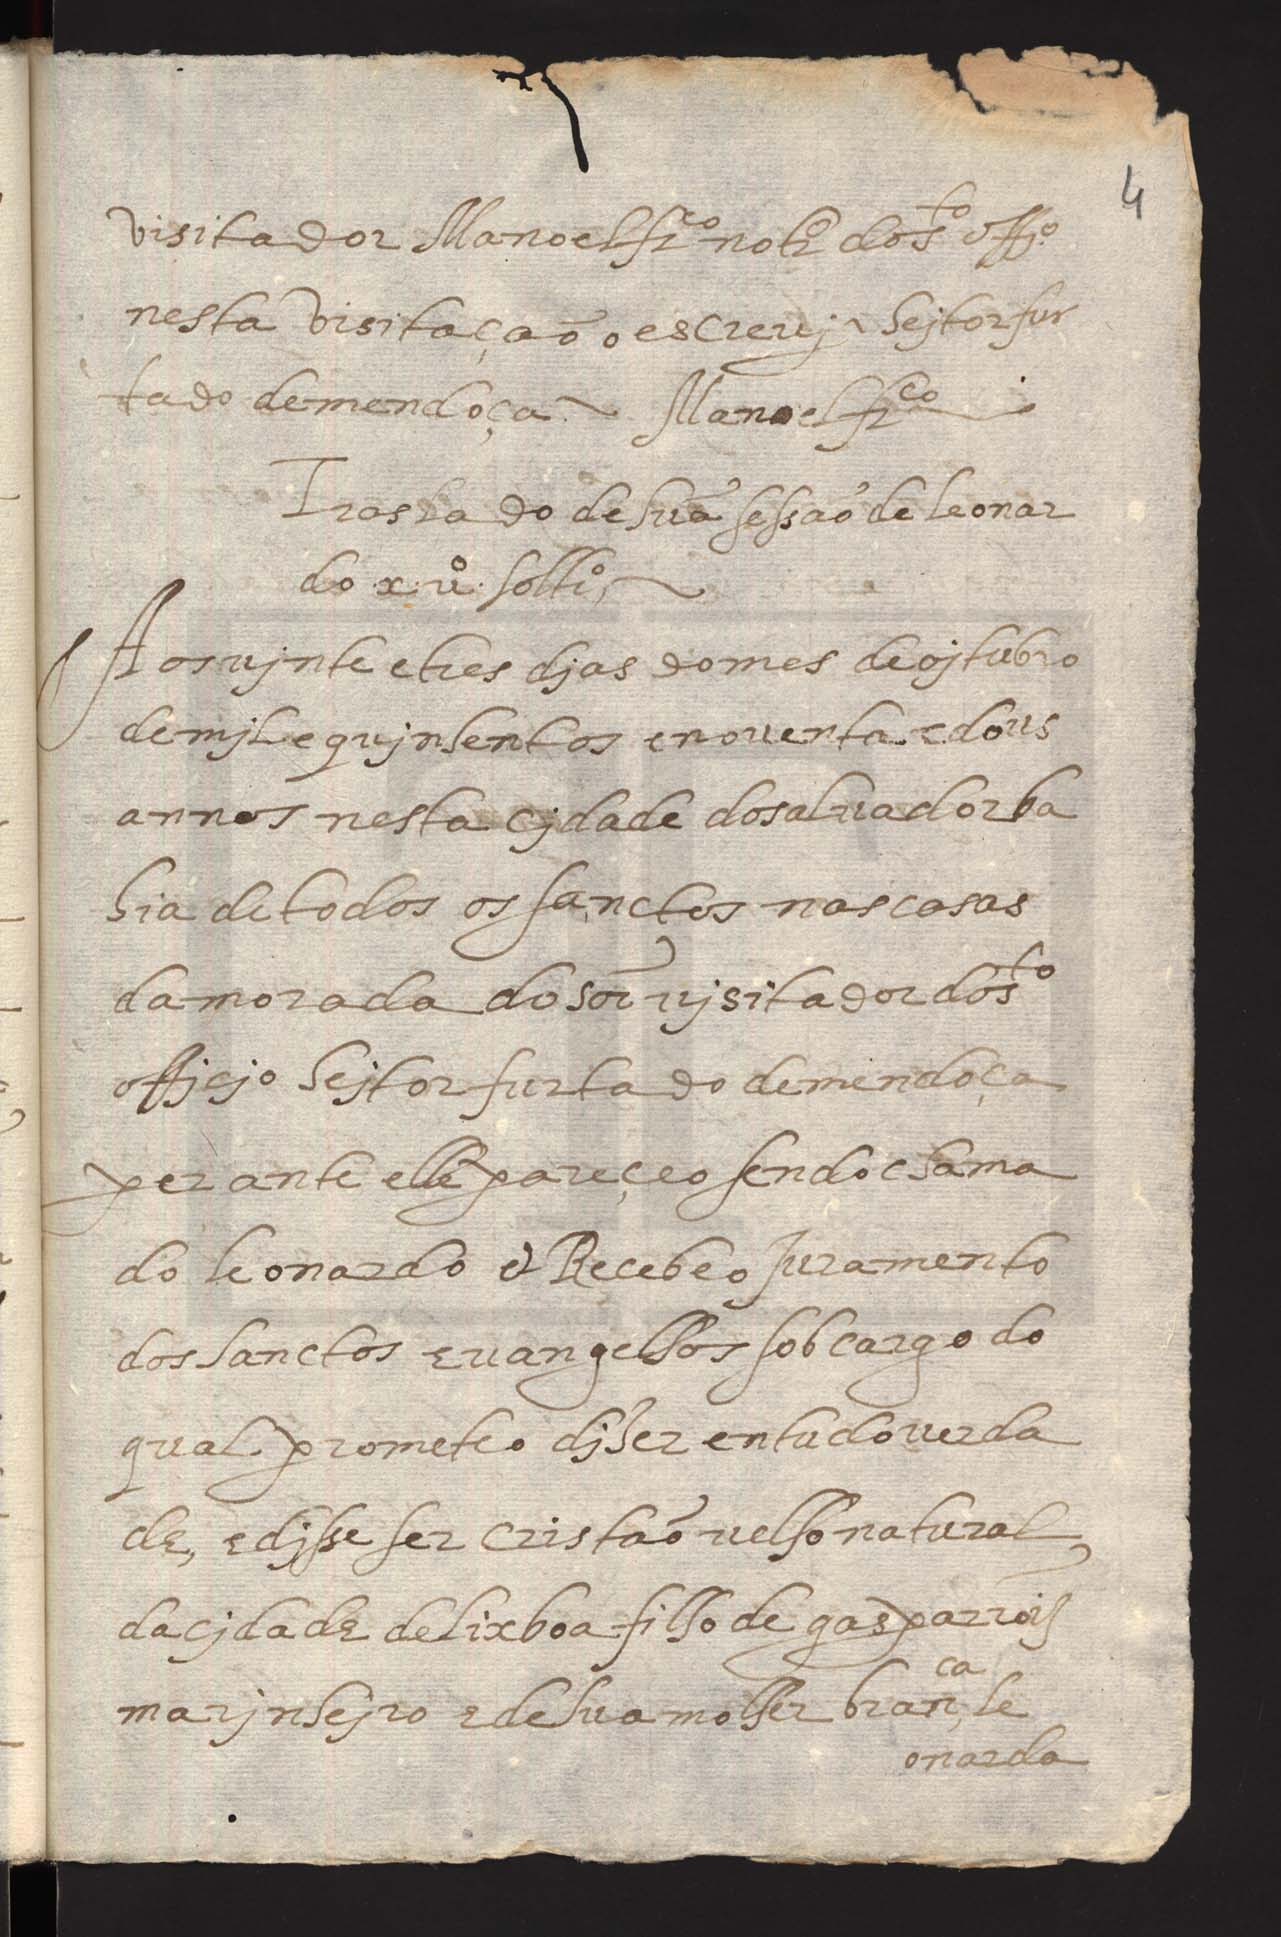 4
visitador Manoel frco notro do sto offo
nesta visitação o escrevj ~ hejtor fur
tado de mendoça ~ Manoel frco
Traslado de huã sessaõ de leonar
do x. vo. soltro, ~
Aos vjnte e tres djas do mes de ojtubro
de mjl e qujnhentos e noventa e dous
annos nesta cjdade do saluador ba
hia de todos os sanctos nas casas
da morada do sõr vjsitador do sto
officjo hejtor furtado de mendoça
perante elle pareçeo sendo chama
do leonardo & Recebeo Juramento
dos sanctos evangelhos sob cargo do
qual prometeo djzer em tudo verda
de, e djsse ser cristaõ velho natural
da cjdade de lixboa filho de gaspar roiz
marjnhejro e de sua molher branca le
onarda